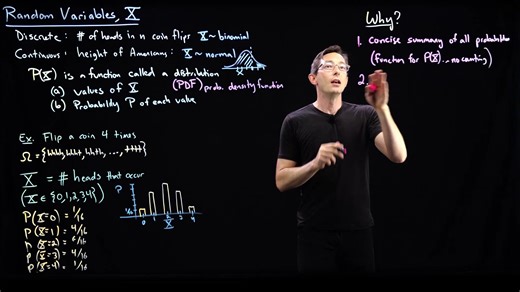 Random Variables, X
Discrete: # of heads in n coin flips X ~ binomial
Continuous: height of Americans; X ~ normal
P(X) is a function called a distribution
(a) values of X
(PDF) prob. density function
(b) Probability P of each value
Ex. Flip a coin 4 times
Ω = {hhhh, hhht, hhth, ..., tttt}
X = # heads that occur
(X ∈ {0,1,2,3,4})
P(X=0) = 1/16
P(X=1) = 4/16
P(X=2) = 6/16
P(X=3) = 4/16
P(X=4) = 1/16
P
1/16
0 1 2 3 4
X
Why?
1. Concise summary of all probabilities
(function for P(X)... no counting)
2.